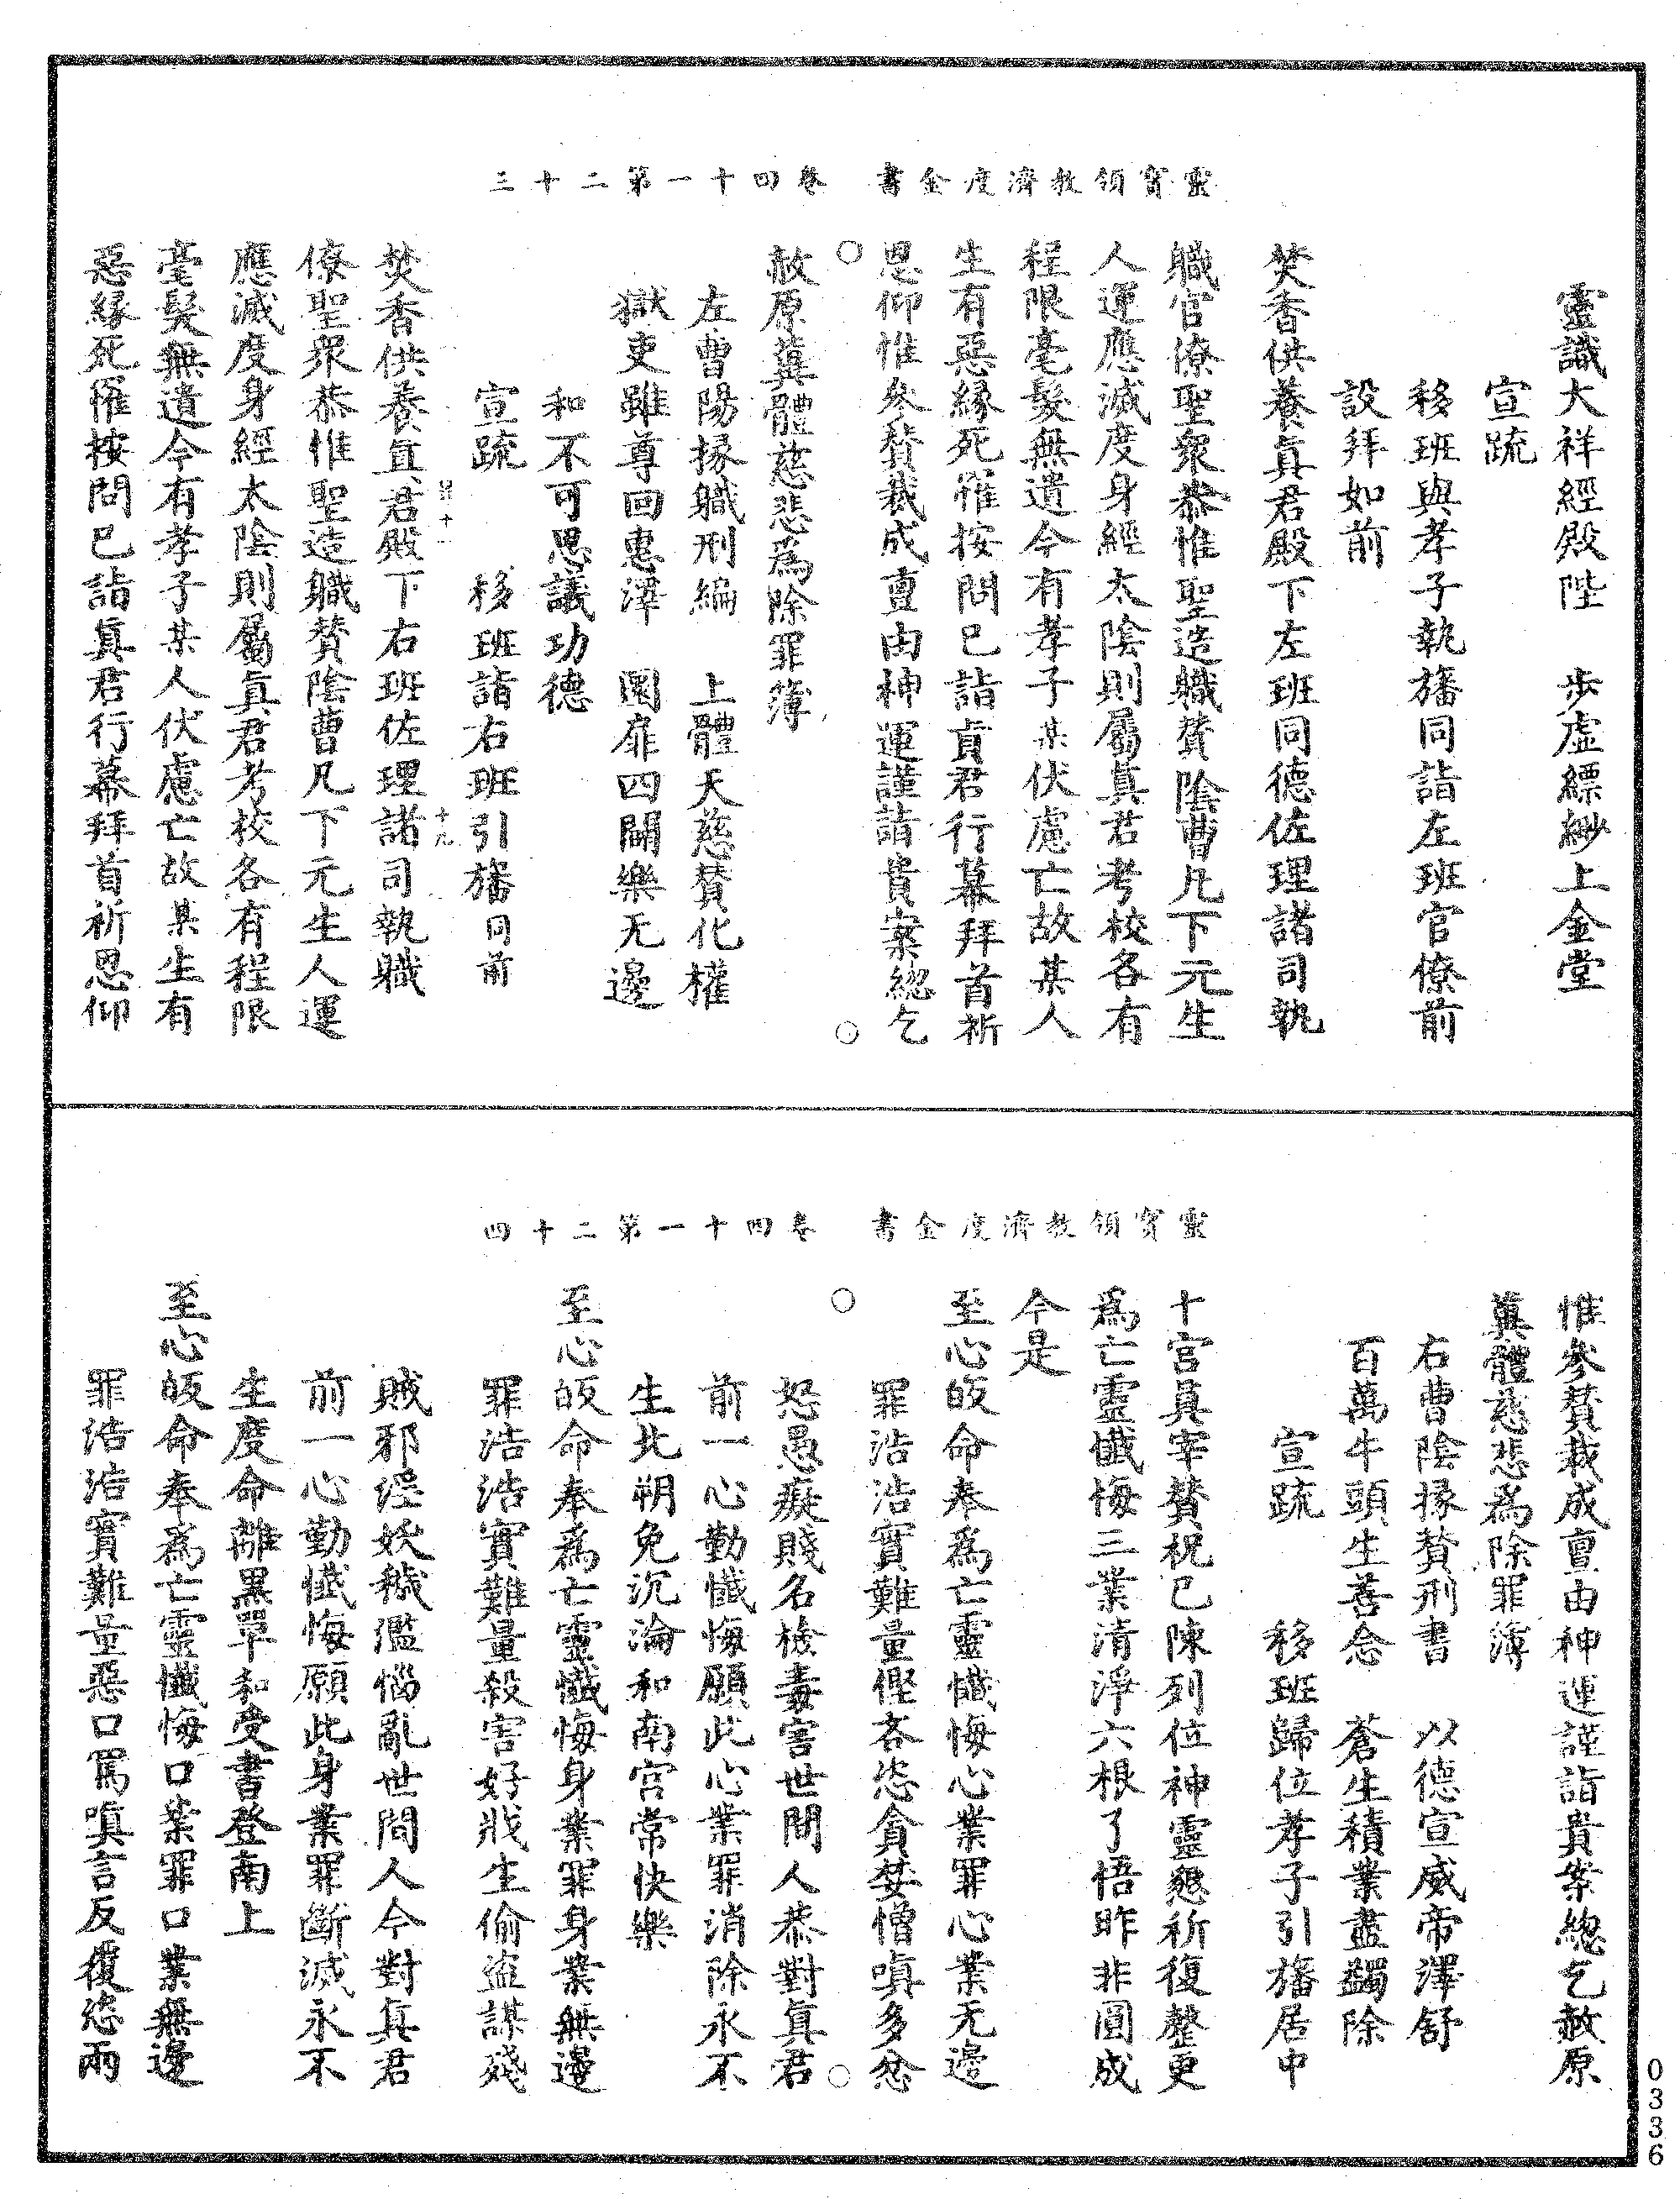 靈寶領教濟度金書　卷四十一第二十三
靈識大祥經殿陛　步虛縹緲上金堂
宣疏
移班與孝子執旛同詣左班官僚前
設拜如前
焚香供養真君殿下左班同德佐理諸司執
職官僚聖衆恭惟聖造職贊陰曹凡下元生
人運應滅度身經太陰則屬真君考校各有
程限毫髮無遺今有孝子某伏慮亡故某人
生有惡緣死罹按問已詣真君行幕拜首祈
恩仰惟參贊裁成亶由神運謹詣貴案總乞
赦原冀體慈悲為除罪簿
左曹陽掾職刑編　上體天慈贊化權
獄吏雖尊回惠澤　圜扉四闢樂无邊
和不可思議功德
宣疏　移班詣右班引旛同前
焚香供養真君殿下右班佐理諸司執職
僚聖衆恭惟聖造職贊陰曹凡下元生人運
應滅度身經太陰則屬真君考校各有程限
毫髮無遺今有孝子某人伏慮亡故某生有
惡緣死罹按問已詣真君行幕拜首祈恩仰
靈寶領教濟度金書　卷四十一第二十四
惟參贊裁成亶由神運謹詣貴案總乞赦原
冀體慈悲為除罪簿
右曹陰掾贊刑書　以德宣威帝澤舒
百萬牛頭生善念　蒼生積業盡蠲除
宣疏　移班歸位孝子引旛居中
十宮真宰贊祝已陳列位神靈懇祈復整更
為亡靈懺悔三業清淨六根了悟昨非圓成
今是
至心皈命奉為亡靈懺悔心業罪心業无邊
罪浩浩實難量慳吝恣貪婪憎嗔多忿
怒愚癡賤名檢毒害世間人恭對真君
前一心勤懺悔願此心業罪消除永不
生北朔免沉淪和南宮常快樂
至心皈命奉為亡靈懺悔身業罪身業無邊
罪浩浩實難量殺害好戕生偷盜謀殘
賊邪淫妖穢濫惱亂世間人今對真君
前一心勤懺悔願此身業罪斷滅永不
生度命離黑單和受書登南上
至心皈命奉為亡靈懺悔口業罪口業無邊
罪浩浩實難量惡口罵嗔言反覆恣兩
0336